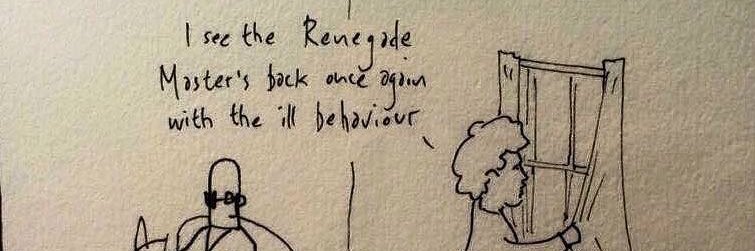 I see the Renegade
Master's back once again
with the ill behaviour